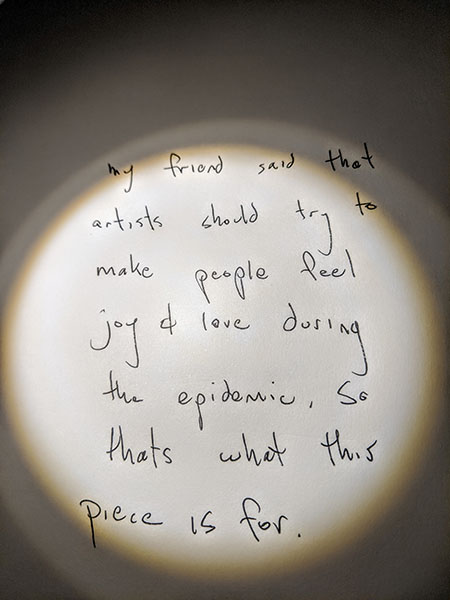 my friend said that
artists should try to
make people feel
joy & love during
the epidemic, so
thats what this
piece is for.